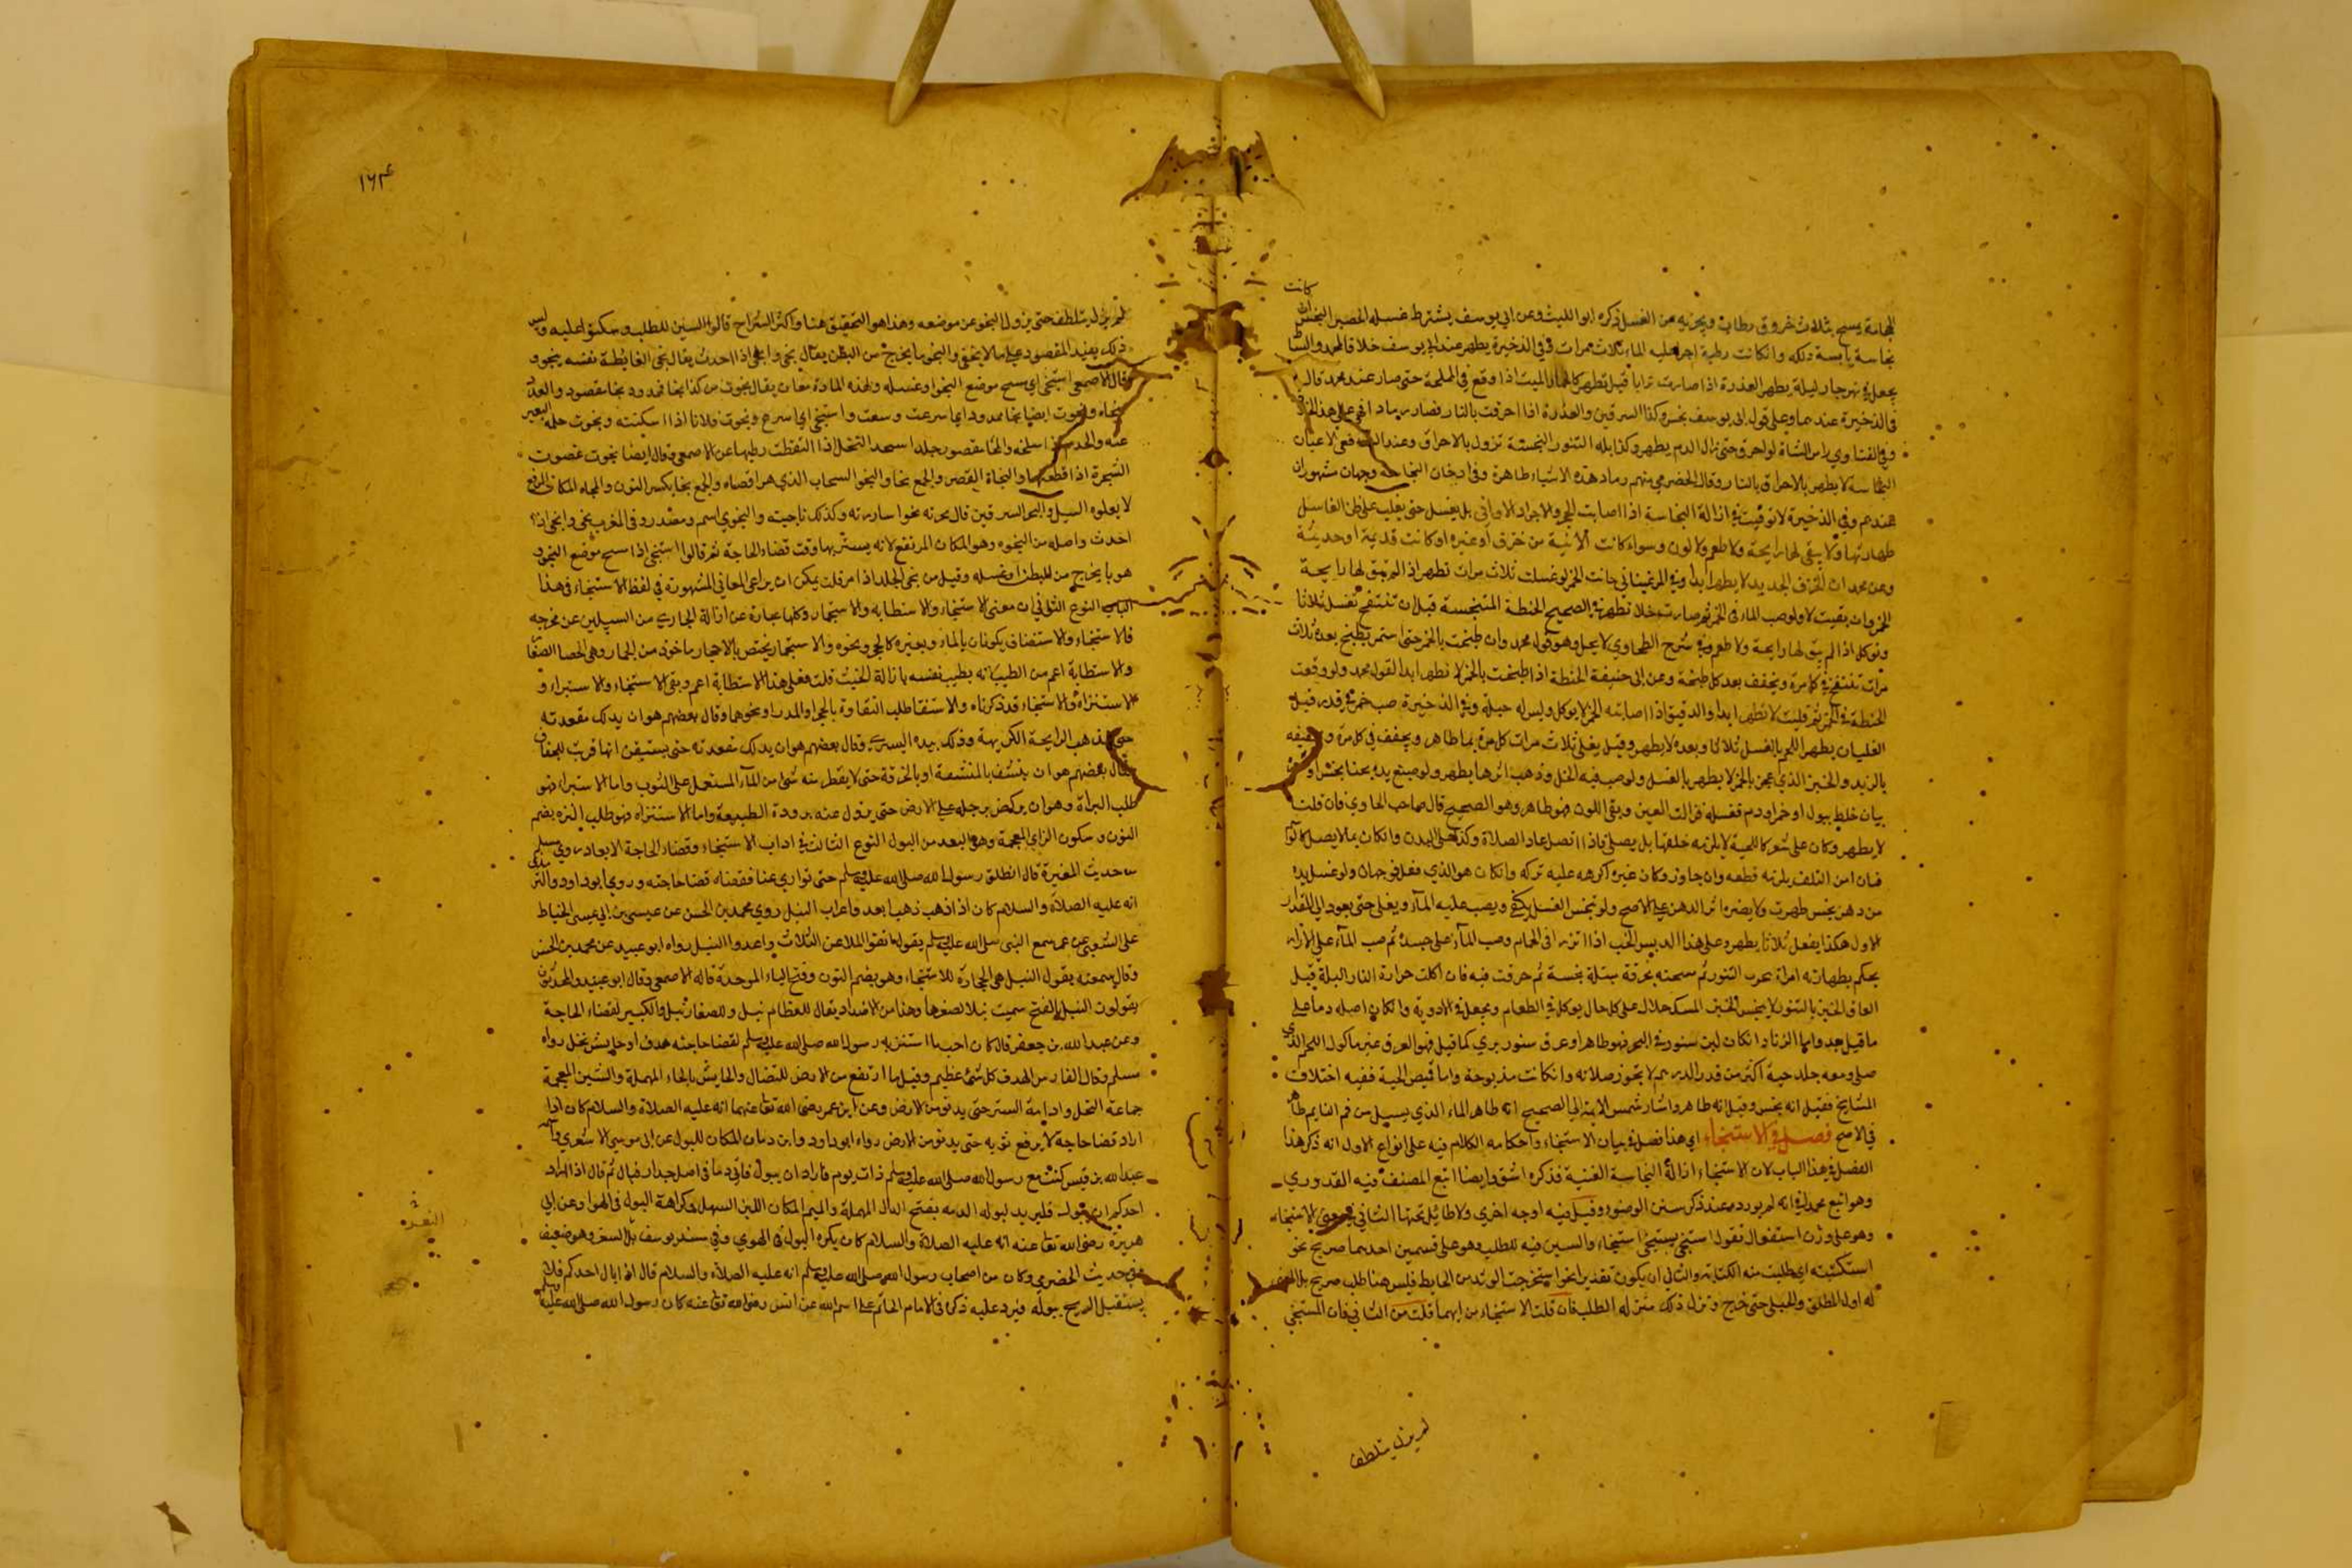 كانت
الحجامة يمسح بثلاث خروق رطاب ويجزيه من الغسل ذكره ابو الليث وعن ابي يوسف يشترط غسله الحصير النجس ان
نجاسة يابسة دلكه وانكانت رطبة اجرى عليه الماء ثلاث مرات وفي الذخيرة يطهر عند ابي يوسف خلافا لمحمد
يجعل في نهر جار ليلة يطهر العذرة اذا صارت ترابا قيل تطهر كالحمار الميت اذا وقع في المملحة حتى صار عند محمد قال
في الذخيرة عندهما وعلى قول ابي يوسف نجس وكذا السرقين والعذرة اذا احرقت بالنار فصار رمادا فهي على هذا الخلاف
وفي الفتاوي راس الشاة لو احرق حتى زال الدم يطهر وكذا بله التنور النجسة تزول بالاحراق وعند الشافعي الاعيان
النجاسة لا يطهر بالاحراق بالنار وقال الحضرمي منهم رماد هذه الاشياء طاهرة وفي دخان النجاسة وجهان مشهوران
عندهم وفي الذخيرة لا توقيت في ازالة النجاسة اذا اصابت الحجر والاجر او الاواني بل يغسل حتى يغلب على ظن الغاسل
طهارتها ولا يبقى لها رايحة ولا طعم ولا لون وسواء كانت الانية من خزف او غيره او كانت قديمة او حديثة
وعن محمد ان الخزف الجديد لا يطهر ابدا وفي المرغيناني خابت الخمر لو غسلت ثلاث مرات تطهر اذا لم يبق لها رايحة
الخمر وان بقيت لا ولو صب الماء في الخمر ثم صارت خلا تطهر في الصحيح الحنطة المتنجسة قبل ان تنتفخ تغسل ثلاثا
وتوكل اذا لم يبق لها رايحة ولا طعم وفي شرح الطحاوي لا يحل وهو قول محمد وان طبخت بالخمر حتى استمر يطبخ بعده ثلاث
مرات تنتفخ في كل مرة وتجفف بعد كل طبخة وعن ابي حنيفة الحنطة اذا طبخت بالخمر لا تطهر ابدا لقول محمد ولو وقعت
الحنطة في الخمر ثم قليت لا تطهر ابدا والدقيق اذا اصابته الخمر لا يوكل وليس له حيلة وفي الذخيرة صب خمر في قدر قبل
الغليان يطهر اللحم بالغسل ثلاثا وبعده لا يطهر وقيل يغلى ثلاث مرات كل مرة بماء طاهر ويجفف في كل مرة وتجفيفه
بالتبريد والخبز الذي عجن بالخمر لا يطهر بالغسل ولو صب فيه الخل وذهب اثرها يطهر ولو صبغ يده بحنا نجس او
بيان خلط ببول او خمر او دم فغسله فزالت العين وبقي اللون فهو طاهر وهو الصحيح قال صاحب الحاوي فان قلت
لا يطهر وكان على شعر كاللحية لا يلزمه حلقها بل يصلي فاذا اتصل عاد الصلاة وكذا على البدن وانكان مما لا يصل
فان امن التلف يلزمه قطعه وان جاوز وكان غيره اكرهه عليه تركه وانكان هو الذي فعل فوجهان ولو غسل يده
من دهن نجس طهرت ولا يضره اثر الدهن على الاصح ولو تنجس العسل يلقى ويصب عليه الماء ويغلى حتى يعود الى المقدار
الاول هكذا يفعل ثلاثا يطهر وعلى هذا الدبس الجنب اذا اتزر في الحمام وصب الماء على جسده ثم صب الماء على الازار
يحكم بطهارته امراة سجرت التنور ثم مسحته بخرقة مبتلة نجسة ثم خبزت فيه فان اكلت حرارة النار البلة قبل
الصاق الخبز بالتنور لا يتنجس الخبز المسك حلال على كل حال يوكل في الطعام ويجعل في الادوية وانكان اصله دما على
ما قيل
صلى ومعه جلد حية اكثر من قدر الدرهم لا تجوز صلاته وانكانت مذبوحة واما قميص الحية ففيه اختلاف
المشايخ فقيل انه نجس وقيل انه طاهر واشار شمس الايمة الى الصحيح انه طاهر الماء الذي يسيل من فم النايم طاهر
في الاصح فصل في الاستنجاء اي هذا فصل في بيان الاستنجاء واحكامه الكلام فيه على انواع الاول انه ذكر هذا
الفصل في هذا الباب لان الاستنجاء ازالة النجاسة العينية فذكره اشق وايضا اتبع المصنف فيه القدوري
وهو اتبع محمد في انه لم يورده عند ذكر سنن الوضوء وقيل فيه اوجه اخري ولا طائل تحتها الثاني في معنى الاستنجاء
وهو على وزن استفعال تقول استنجى يستنجي استنجاء والسين فيه للطلب وهو على قسمين احدهما صريح نحو
استكتبته اي طلبت منه الكتابة والثاني ان يكون تقديرا نحو استخرجت الوتد من الحايط فليس هنا طلب صريح بل المعنى
له اول المطلق والحيل حتى خرج وتنزل ذلك منزلة الطلب فان قلت الاستنجاء من ايهما قلت من الثاني فان المستنجي
لم يزل يتلطف
١٦٤
لم يزل يتلطف حتى يزول النجو عن موضعه وهذا هو التحقيق هنا واكثر الشراح قالوا السين للطلب وسكتوا عليه وليس
ذلك يفيد المقصود على ما لا يخفى والنجو ما يخرج من البطن يقال نجى وانجى اذا احدث يقال نجى الغايط نفسه ينجو و
قال الاصمعي استنجى اي مسح موضع النجو او غسله ولهذه المادة معان يقال نجوت من كذا نجاء ممدود ونجا مقصود
نجاه ونجوت ايضا نجاء ممدود اي اسرعت وسبقت واستنجى اي اسرع ونجوت فلانا اذا استنكهته ونجوت جلد البعير
عنه وانجيته اذا سلخته والنجا مقصور جلد استنجد النخل اذا التقطت رطبها عن الاصمعي وقال ايضا نجوت غصون
الشجرة اذا قطعتها والنجاة الغصن والجمع نجا والنجو السحاب الذي هراق ماءه والجمع نجا بكسر النون والنجاه المكان المرتفع
لا يعلوه السيل
احدث واصله من النجوه وهو المكان المرتفع لانه يستتر بها وقت قضاء الحاجة ثم قالوا استنجى اذا مسح موضع النجو و
هو ما يخرج من البطن او غسله وقيل من نجى الجلد اذا قشره قلت يمكن ان يراعى المعاني المشهورة في لفظ الاستنجاء في هذا
الباب النوع الثاني ان معنى الاستنجاء والاستطابة والاستجمار وكلها عبارة عن ازالة الخارج من السبيلين عن مخرجه
فالاستنجاء والاستطابة يكونان بالماء وبغيره كالحجر ونحوه والاستجمار يختص بالاحجار ماخوذ من الجمار وهي الحصا الصغار
والاستطابة اعم من الطيب لانه يطيب نفسه بازالة الخبث قلت فعلى هذا الاستطابة اعم وبقي الاستنجاء والاستبراء و
الاستنزاه والاستنجاء قد ذكرناه والاستنقاء طلب النقاوة بالحجر او المدر او نحوهما وقال بعضهم هو ان يدلك مقعدته
حتى يذهب الرايحة الكريهة وذلك بيده اليسرى وقال بعضهم هو ان يدلك مقعدته حتى يستيقن انها قربت للجفاف
وقال بعضهم هو ان ينشف بالمنشفة او بالخرقة حتى لا يقطر منه شيء من الماء المستعمل على الثوب واما الاستبراء فهو
طلب البراة وهو ان يركض برجله على الارض حتى يزول عنه برودة الطبيعة واما الاستنزاه فهو طلب النزه بضم
النون وسكون الزاي المعجمة وهو البعد من البول النوع الثالث في اداب الاستنجاء وقضاء الحاجة الابعاد روى مسلم
من حديث المغيرة قال انطلق رسول الله صلى الله عليه وسلم حتى تواري عنا فقضى حاجته وروي ابو داود والترمذي
انه عليه الصلاة والسلام كان اذا ذهب ذهبا بعد واعداد النبل روي محمد بن الحسن عن عيسى بن ابي عيسى الخياط
عن الشعبي عن من سمع النبي صلى الله عليه وسلم يقول اتقوا الملاعن الثلاث واعدوا النبل رواه ابو عبيد عن محمد بن الحسن
وقال سمعته يقول النبل هي الحجارة للاستنجاء وهو بضم النون وفتح الباء الموحدة قاله الاصمعي وقال ابو عبيد والمحدثون
يقولون النبل بالفتح سميت نبلا لصغرها وهذا من الاضداد يقال للعظام نبل وللصغار نبل والكبير لقضاء الحاجة
وعن عبدالله بن جعفر قال كان احب ما استتر به رسول الله صلى الله عليه وسلم لقضاء حاجته هدف او حايش نخل رواه
مسلم وقال الفارسي الهدف كل شيء عظيم وقيل ما ارتفع من الارض للنضال والحايش بالحاء المهملة والشين المعجمة
جماعة النخل وادامة الستر حتى يدنو من الارض وعن ابن عمر رضي الله تعالى عنهما انه عليه الصلاة والسلام كان اذا
اراد قضاء حاجة لا يرفع ثوبه حتى يدنو من الارض رواه ابو داود المكان للبول عن ابي موسى الاشعري
عبدالله بن قيس كنت مع رسول الله صلى الله عليه وسلم ذات يوم فاراد ان يبول فاتى دمثا في اصل جدار فبال ثم قال اذا اراد
احدكم ان يبول فليرتد لبوله الدمث بفتح الدال المهملة والميم المكان اللين السهل وكراهة البول في الهواء وعن ابي
هريرة رضي الله تعالى عنه انه عليه الصلاة والسلام كان يكره البول في الهوي وفي سنده يوسف بن السفر وهو ضعيف
وفي حديث الحضرمي وكان من اصحاب رسول الله صلى الله عليه وسلم انه عليه الصلاة والسلام قال اذا بال احدكم فلا
يستقبل الريح ببوله فيرد عليه ذكره في الامام عن انس رضي الله تعالى عنه كان رسول الله صلى الله عليه وسلم